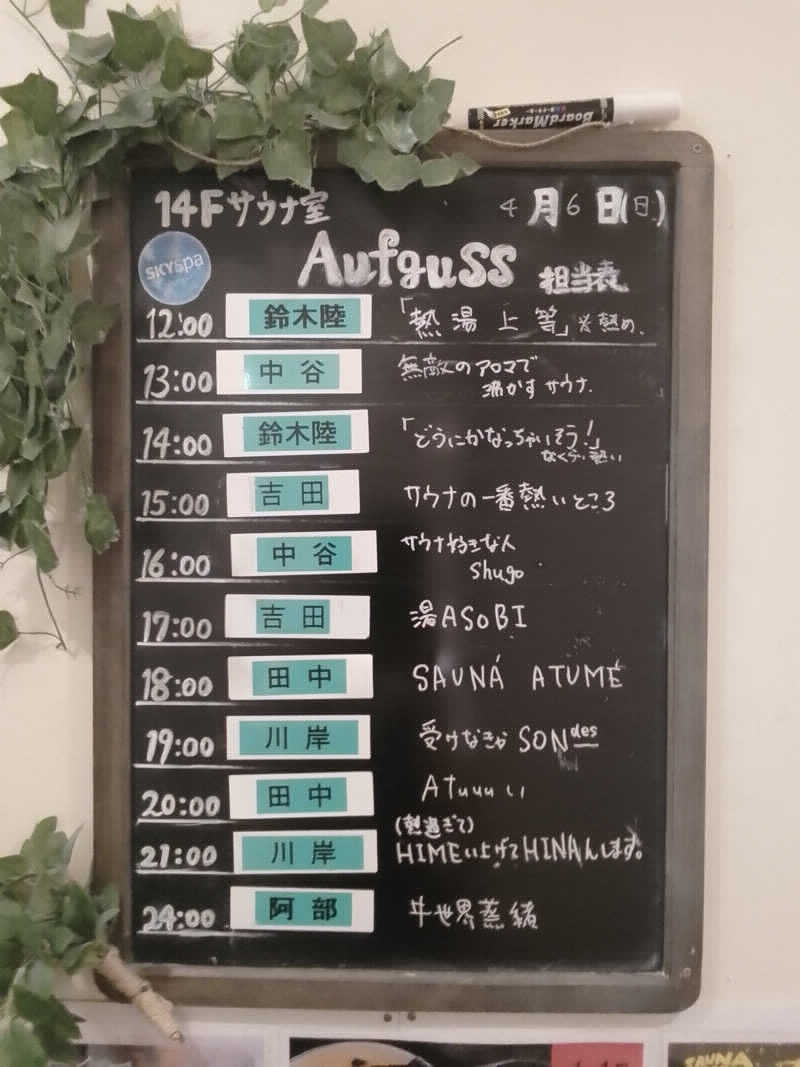 BoardMarker
14Fサウナ室 4月6日(日)
skyspa
Aufguss 担当表
12:00 鈴木陸 「熱湯上等」※熱め.
13:00 中谷 無敵のアロマで
沸かす サウナ.
14:00 鈴木陸 「どうにかなっちゃいそう!」
なくらい熱い
15:00 吉田 サウナの一番熱いところ
16:00 中谷 サウナ好きな人
Shugo
17:00 吉田 湯ASoBI
18:00 田中 SAUNÁ ATUMÉ
19:00 川岸 受けなきゃ SONdes
20:00 田中 Atuuuい
(熱過ぎて)
21:00 川岸 HIMEい上げてHINAんします。
24:00 阿部 世界蒸
SAUNA